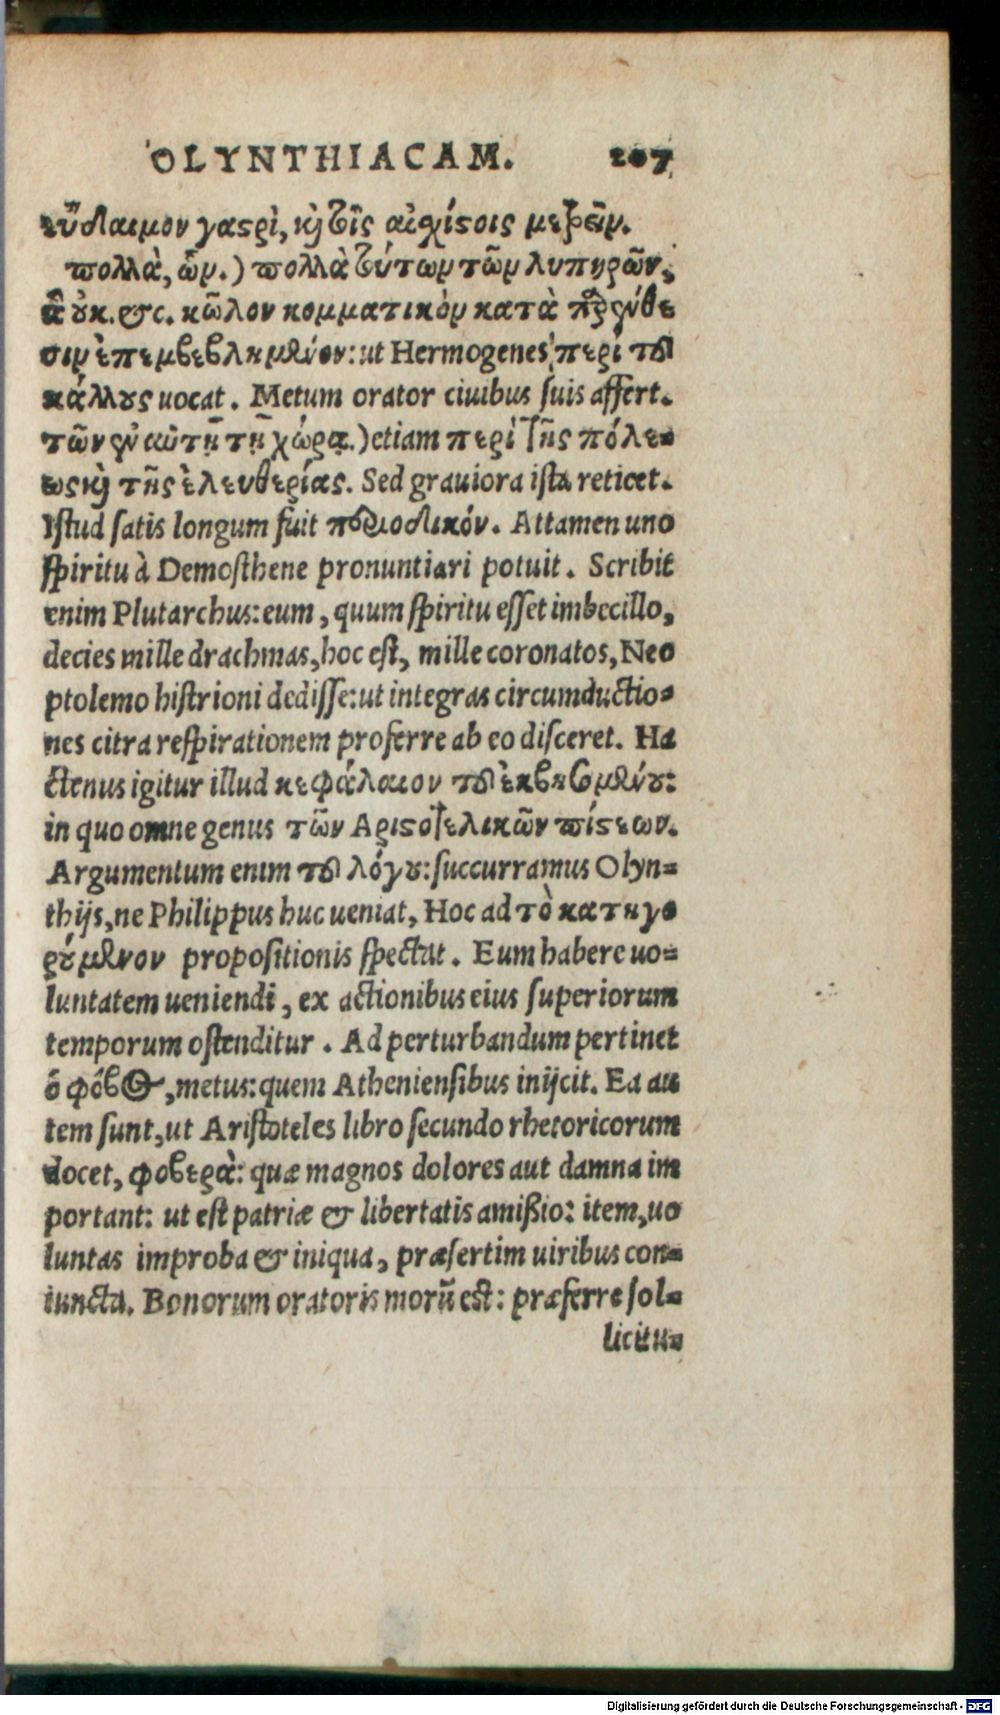 OLYNTHIACAM. 207
εὔδαιμον γαςρὶ, κỳ τοῖς αἰχίςοις μεῤῶν.
πολλὰ, ὧν.) πολλὰ τούτων τῶν λυπηρῶν,
ἃ οὐκ. &c. κῶλον κομματικὸν κατὰ παρένθε
σιν ἐπεμβεβλημένον: ut Hermogenes, περὶ τοῦ
κάλλους uocat. Metum orator ciuibus suis affert.
τῶν ἐν αὐτῇ τῇ χώρᾳ.) etiam περὶ τῆς πόλε-
ως κỳ τῆς ἐλευθερίας. Sed grauiora ista reticet.
Istud satis longum fuit περιοδικόν. Attamen uno
spiritu à Demosthene pronuntiari potuit. Scribit
enim Plutarchus: eum, quum spiritu esset imbecillo,
decies mille drachmas, hoc est, mille coronatos, Neo
ptolemo histrioni dedisse: ut integras circumductio-
nes citra respirationem proferre ab eo disceret. Ha
ctenus igitur illud κεφάλαιον τοῦ ἐκβησομένου:
in quo omne genus τῶν Αριςοτελικῶν πίςεων.
Argumentum enim τοῦ λόγου: succurramus Olyn-
thijs, ne Philippus huc ueniat, Hoc ad τὸ κατηγο
ρούμενον propositionis spectat. Eum habere uo-
luntatem ueniendi, ex actionibus eius superiorum
temporum ostenditur. Ad perturbandum pertinet
ὁ φόβος, metus: quem Atheniensibus inijcit. Ea au
tem sunt, ut Aristoteles libro secundo rhetoricorum
docet, φοβερὰ: quæ magnos dolores aut damna im
portant: ut est patriæ & libertatis amißio: item, uo
luntas improba & iniqua, præsertim uiribus con-
iuncta. Bonorum oratoris morū est: præferre sol-
licitu-
Digitalisierung gefördert durch die Deutsche Forschungsgemeinschaft - DFG